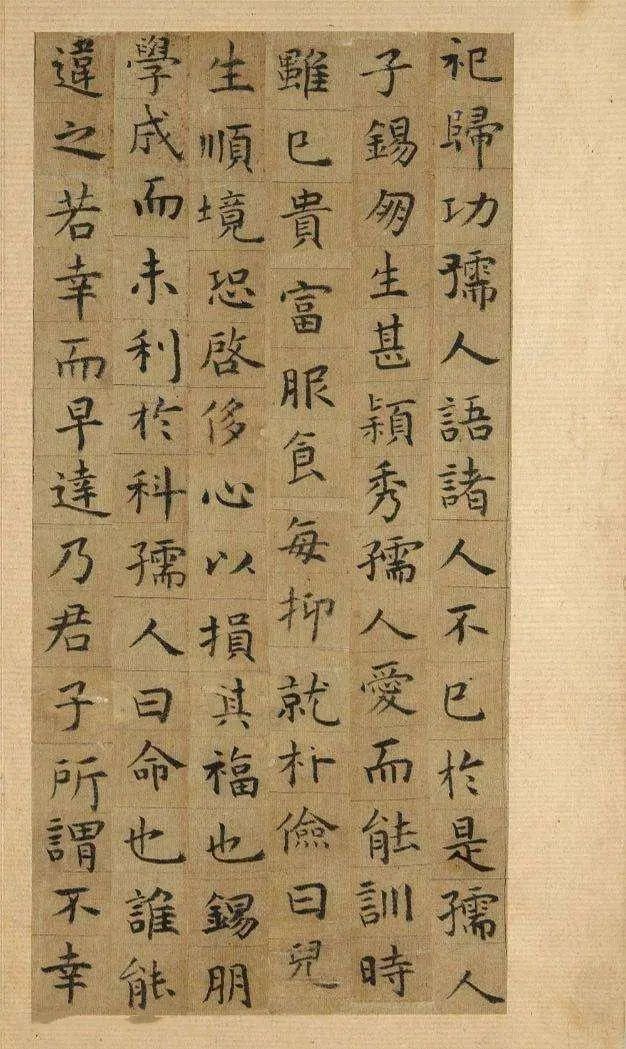 祀歸功孺人語諸人不已於是孺人
子錫朋生甚穎秀孺人愛而能訓時
雖已貴富服食每抑就朴儉曰兒
生順境恐啓侈心以損其福也錫朋
學成而未利於科孺人曰命也誰能
違之若幸而早達乃君子所謂不幸